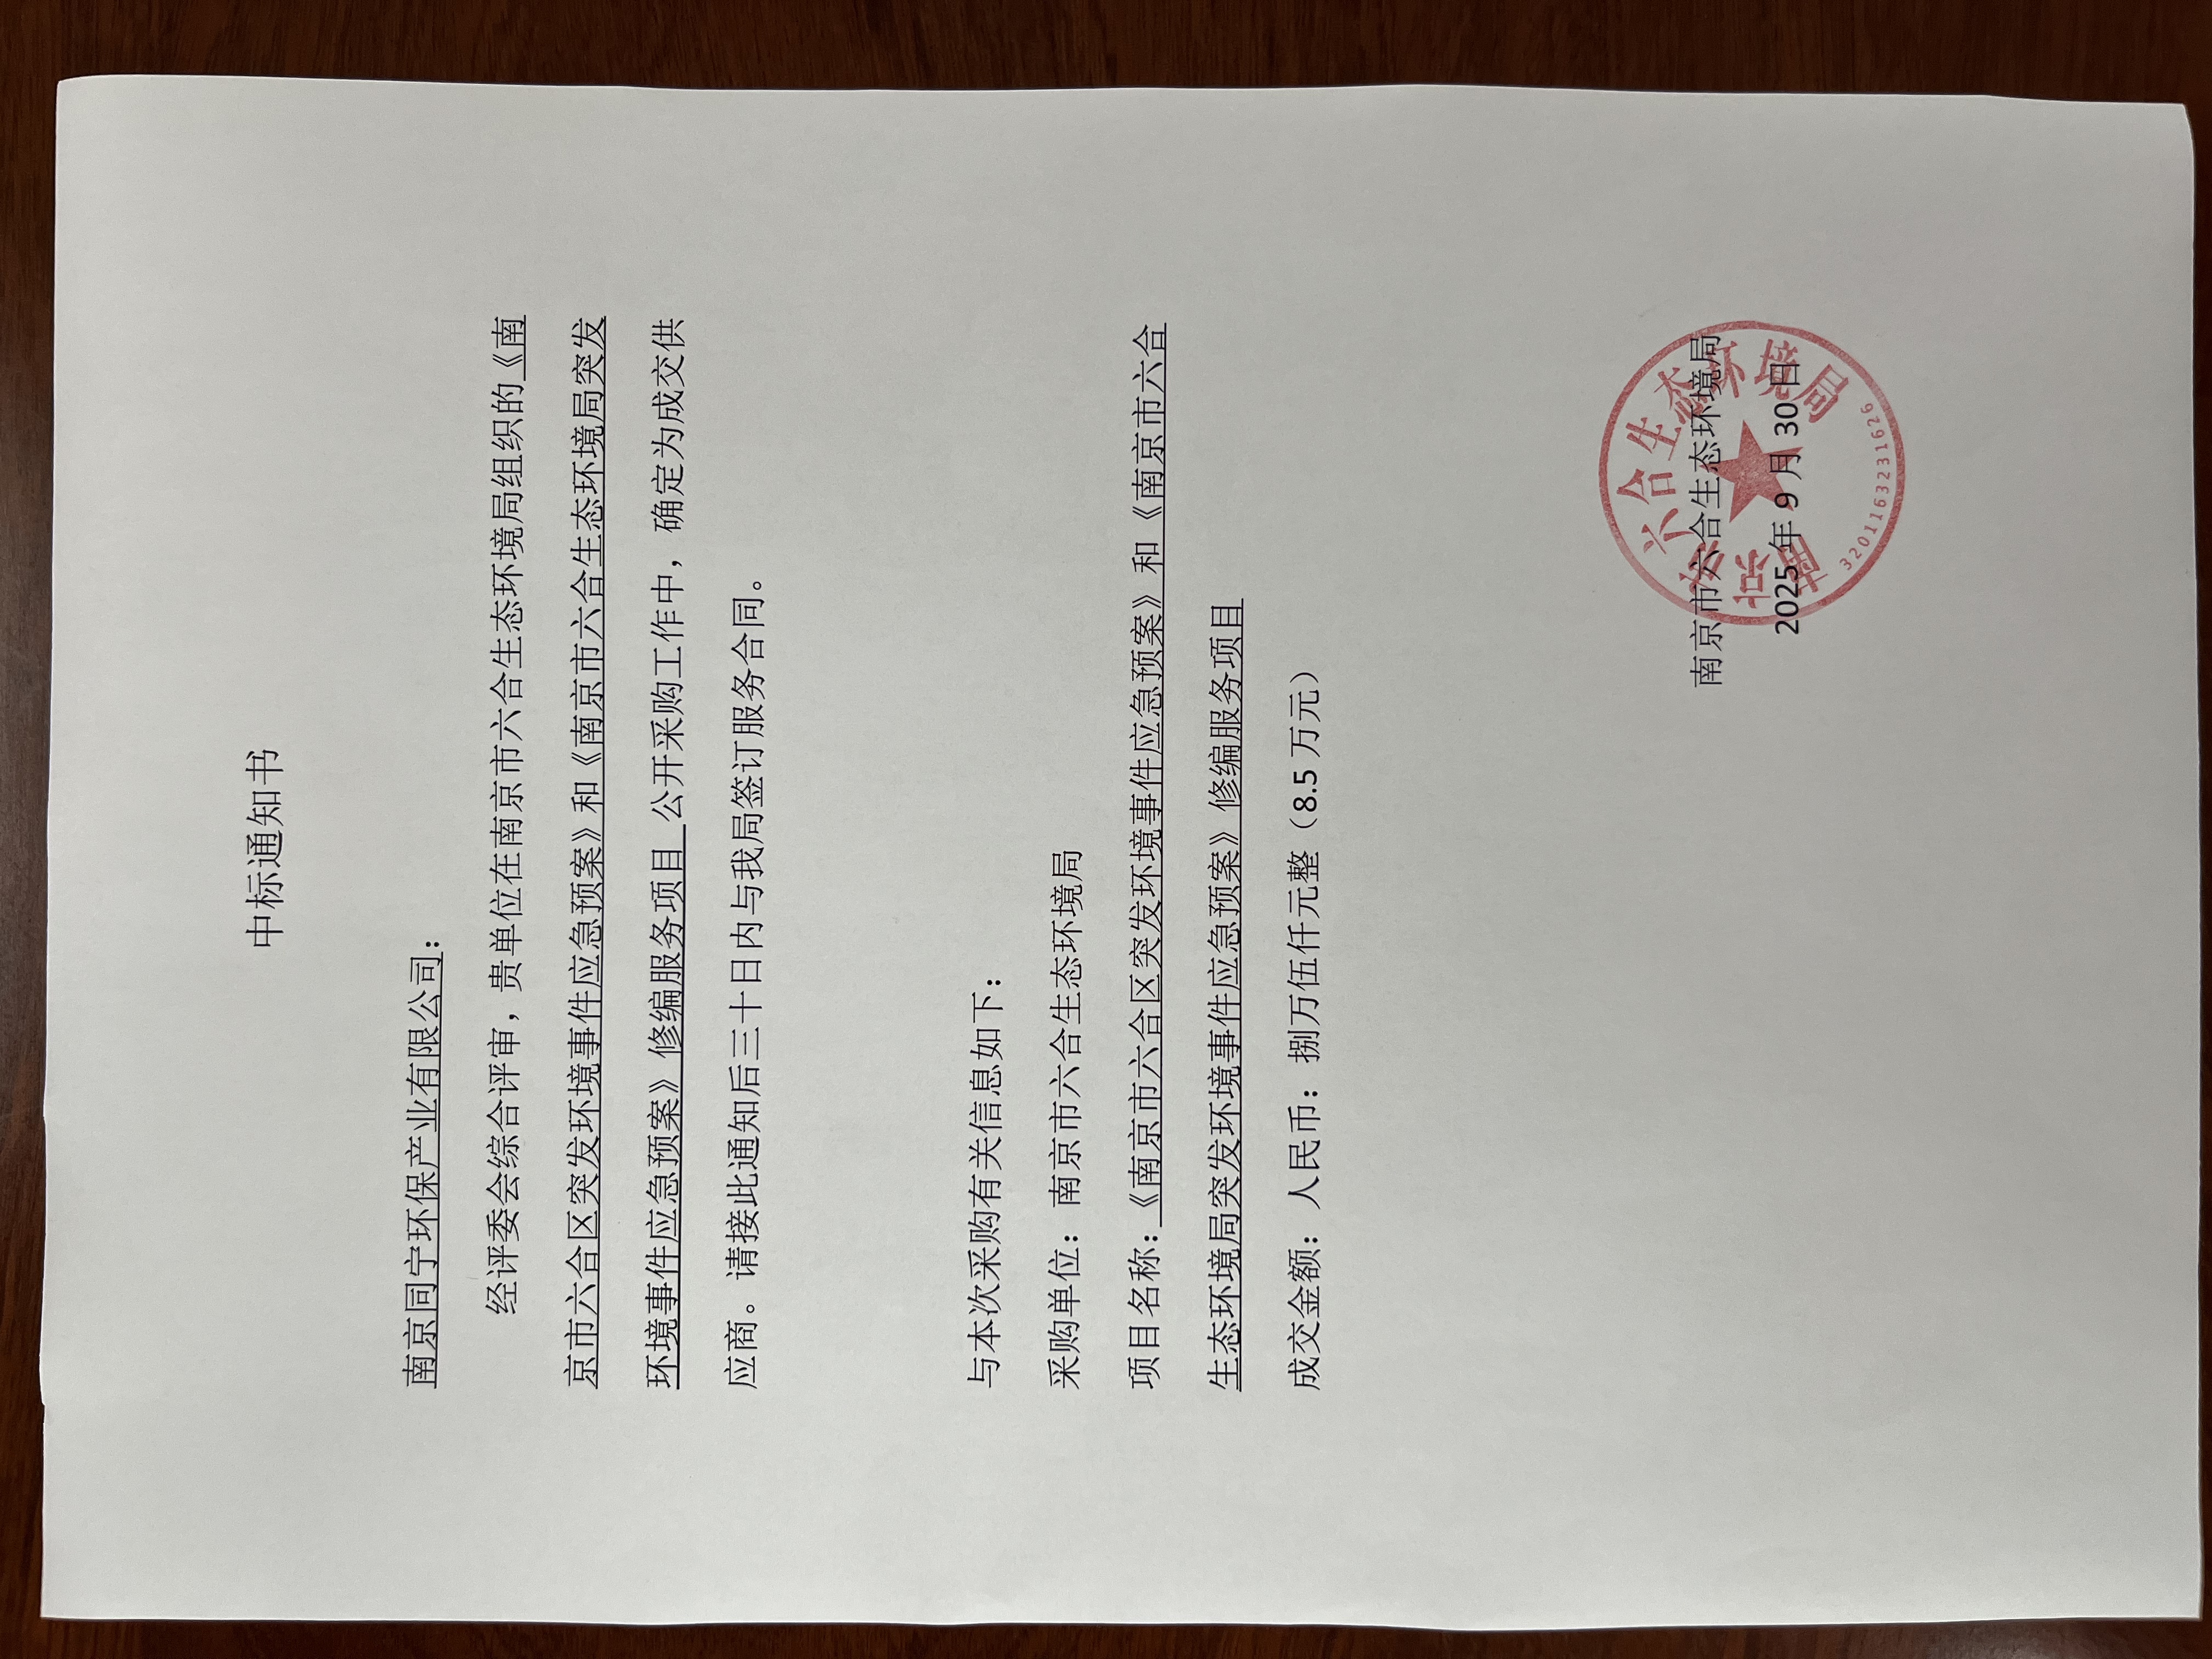 中标通知书
南京同宁环保产业有限公司：
经评委会综合评审，贵单位在南京市六合生态环境局组织的《南
京市六合区突发环境事件应急预案》和《南京市六合生态环境局突发
环境事件应急预案》修编服务项目 公开采购工作中，确定为成交供
应商。请接此通知后三十日内与我局签订服务合同。
与本次采购有关信息如下：
采购单位：南京市六合生态环境局
项目名称：《南京市六合区突发环境事件应急预案》和《南京市六合
生态环境局突发环境事件应急预案》修编服务项目
成交金额：人民币：捌万伍仟元整（8.5 万元）
南京市六合生态环境局
2025年 9 月 30 日
南京市六合生态环境局
3201163231626